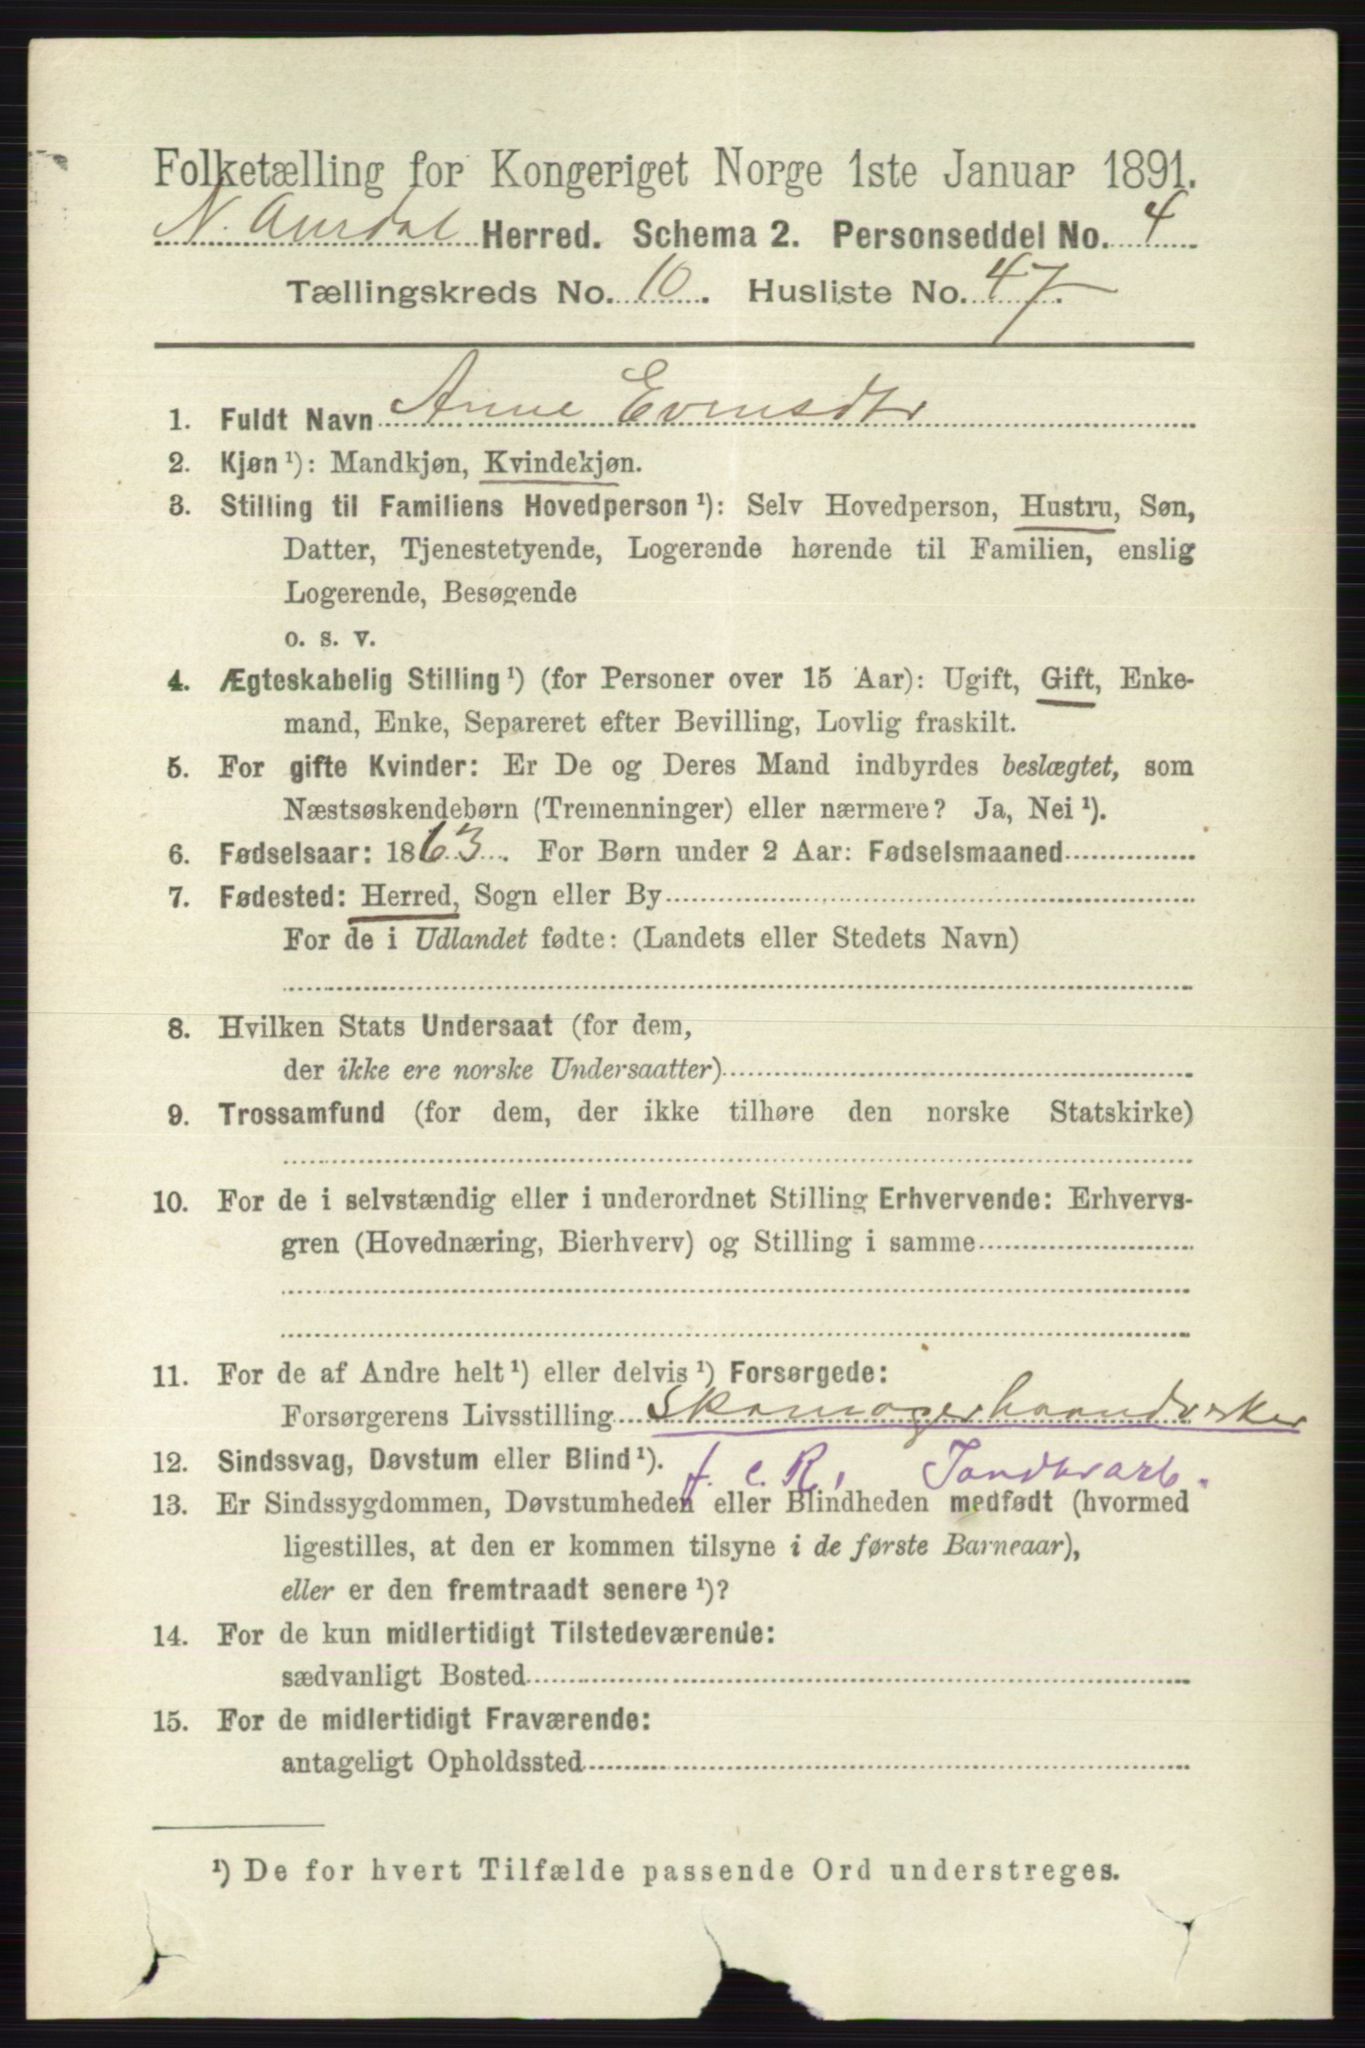 Folketælling for Kongeriget Norge 1ste Januar 1891.
N. Aurdal Herred. Schema 2. Personseddel No. 4
Tællingskreds No. 10. Husliste No. 47.
1. Fuldt Navn Anne Evensdtr
2. Kjøn ¹): Mandkjøn, Kvindekjøn.
3. Stilling til Familiens Hovedperson ¹): Selv Hovedperson, Hustru, Søn,
Datter, Tjenestetyende, Logerende hørende til Familien, enslig
Logerende, Besøgende
o. s. v.
4. Ægteskabelig Stilling ¹) (for Personer over 15 Aar): Ugift, Gift, Enke-
mand, Enke, Separeret efter Bevilling, Lovlig fraskilt.
5. For gifte Kvinder: Er De og Deres Mand indbyrdes beslægtet, som
Næstsøskendebørn (Tremenninger) eller nærmere? Ja, Nei ¹).
6. Fødselsaar: 1863. For Børn under 2 Aar: Fødselsmaaned
7. Fødested: Herred, Sogn eller By
For de i Udlandet fødte: (Landets eller Stedets Navn)
8. Hvilken Stats Undersaat (for dem,
der ikke ere norske Undersaatter)
9. Trossamfund (for dem, der ikke tilhøre den norske Statskirke)
10. For de i selvstændig eller i underordnet Stilling Erhvervende: Erhvervs-
gren (Hovednæring, Bierhverv) og Stilling i samme
11. For de af Andre helt ¹) eller delvis ¹) Forsørgede:
Forsørgerens Livsstilling Skomagerhaandverker
12. Sindssvag, Døvstum eller Blind ¹). f. e. R.
13. Er Sindssygdommen, Døvstumheden eller Blindheden medfødt (hvormed
ligestilles, at den er kommen tilsyne i de første Barneaar),
eller er den fremtraadt senere ¹)?
14. For de kun midlertidigt Tilstedeværende:
sædvanligt Bosted
15. For de midlertidigt Fraværende:
antageligt Opholdssted
¹) De for hvert Tilfælde passende Ord understreges.